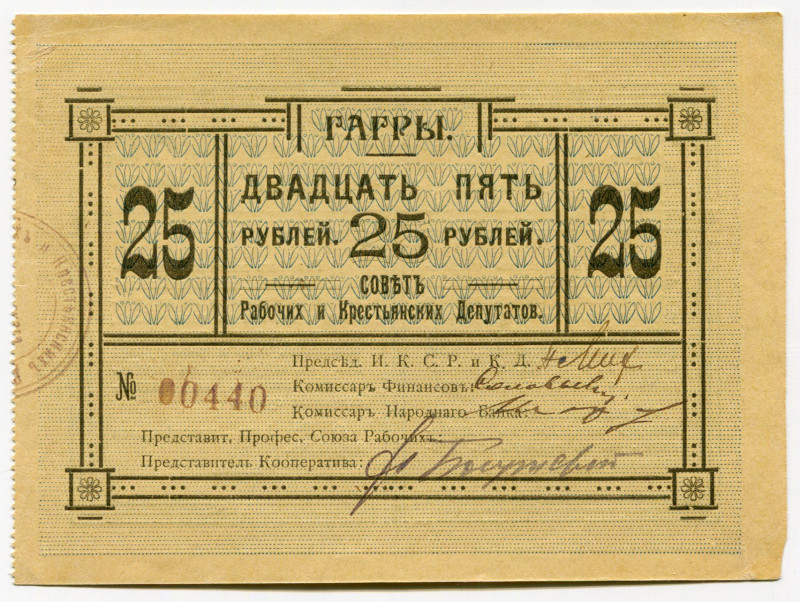 ГАГРЫ.
25 ДВАДЦАТЬ ПЯТЬ 25
РУБЛЕЙ. 25 РУБЛЕЙ.
СОВѢТЪ
Рабочих и Крестьянских Депутатов.
Предсѣд. И. К. С. Р. и К. Д.
№ 00440
Комиссаръ Финансовъ:
Комиссаръ Народнаго Банка:
Представит. Профес. Союза Рабочихъ:
Представитель Кооператива:
и Крестьянскихъ